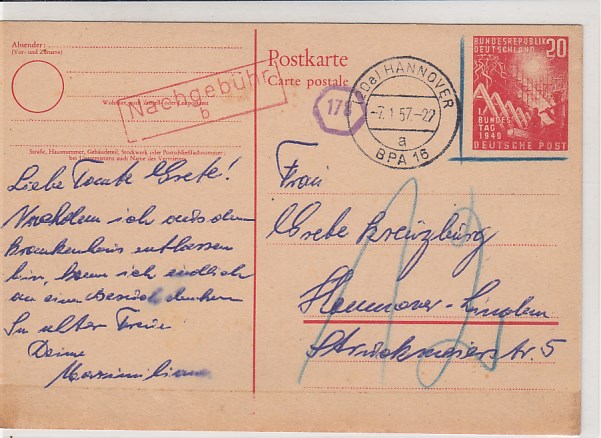 Absender:
(Vor- und Zuname)
Wohnort, auch Zustell- oder Leitpostamt
Straße, Hausnummer, Gebäudeteil, Stockwerk oder Postschließfachnummer
bei Untermietern auch Name des Vermieters
Nachgebühr
b
Postkarte
Carte postale
178
(20a) HANNOVER
-7.1.57-22
a
BPA 16
BUNDESREPUBLIK
DEUTSCHLAND
20
1.
BUNDES
TAG
1949
DEUTSCHE POST
Liebe Tante Grete!
Nachdem ich aus dem
Krankenhaus entlassen
bin, kann ich endlich
an einen Besuch denken
In alter Treue
Deine
Maximiliane
Frau
Grete Kreuzburg
Hannover-Linden
Struckmeierstr. 5